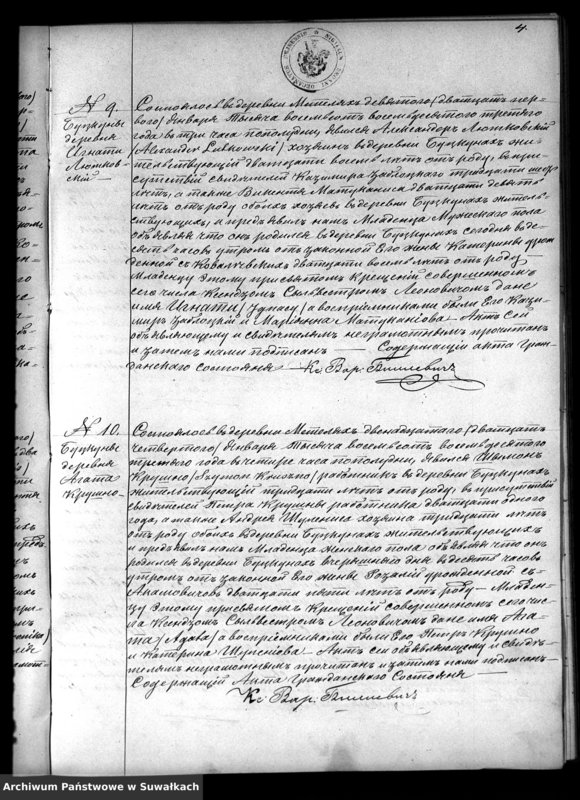 4.
№ 9.
Буцкуны
деревня
Игнати
Лютков-
скій
Состоялось въ деревни Метеляхъ девятаго/двадцать пер-
ваго/Января тысяча восемьсотъ восемдесятъ третяго
года въ три часа пополудни, явился Александръ Лютковскій
хозяинъ въ деревни Буцкунахъ жи-
тельствующій двадцати восемъ лѣтъ отъ роду, въ при-
сутствіи свидѣтелей Казимира Заблоцкаго тридцати шесть
лѣтъ, а также Викентія Матуканиса двадцати девять
лѣтъ отъ роду обоихъ хозяевъ въ деревни Буцкунахъ житель-
ствующихъ, и предъявилъ намъ Младенца Мужескаго пола
объявляя что онъ родился въ деревни Буцкунахъ сегодня въ де-
сять часовъ утромъ отъ законной Его жены Катерины урож-
денной съ Ковалевскихъ двадцати восемъ лѣтъ отъ роду
Младенцу Этому при святомъ Крещеніи совершенномъ
сего числа Ксендзомъ Сильвестромъ Леоновичомъ дано
имя Игнати, а воспріемниками были Его Кази-
миръ Заблоцкій и Маріанна Матуканюва. Актъ сей
объявляющему и свидѣтелямъ неграмотнымъ прочитанъ
и затемъ нами подписанъ — Содержащій акта Граж-
данскаго состоянія — Кс. Вар.
№ 10.
Буцкуны
деревня
Агата
Крушно
Состоялось въ деревни Метеляхъ двенадцатаго/двадцать
четвертаго/Января тысяча восемьсотъ восемдесятъ
третяго года въ четыре часа пополудни, явился Шимонъ
Крушно работникъ въ деревни Буцкунахъ
жительствующій тридцати лѣтъ отъ роду, въ присутствіи
свидѣтелей Петра Крушны работника двадцати одного
года, а также Андрея Шулскиса хозяина тридцати лѣтъ
отъ роду обоихъ въ деревни Буцкунахъ жительствующихъ
и предъявилъ намъ Младенца женскаго пола объявляя что онъ
родился въ деревни Буцкунахъ вчерашняго дня въ десять часовъ
утромъ отъ законной Его жены Розаліи урожденной съ
Адамовичовъ двадцати пяти лѣтъ отъ роду — Младен-
цу Этому при святомъ Крещеніи совершенномъ сего чис-
ла Ксендзомъ Сильвестромъ Леоновичомъ дано имя Ага-
та, а воспріемниками были Его Петръ Крушно
и Катерина Актъ сей объявляющему и свидѣ-
телямъ неграмотнымъ прочитанъ и затемъ нами подписанъ
Содержащій Акта Гражданскаго Состоянія —
Кс. Вар.
Archiwum Państwowe w Suwałkach